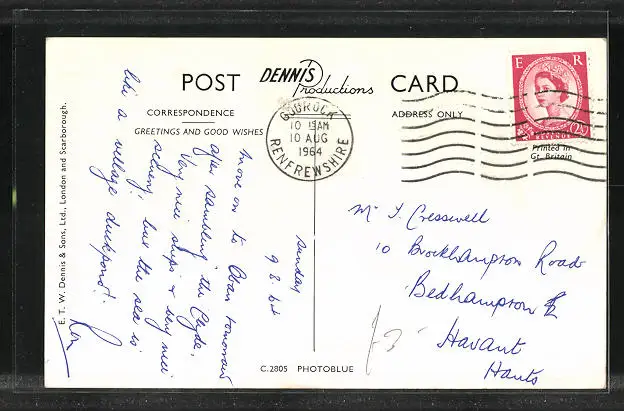 POST DENNIS Productions CARD
CORRESPONDENCE
ADDRESS ONLY
GREETINGS AND GOOD WISHES
E R
2½D
REVENUE
Printed in
Gt. Britain
GOUROCK
10 15AM
10 AUG
1964
RENFREWSHIRE
Sunday
9.8.64
Move on to Oban tomorrow
after sampling the Clyde.
Very nice ships & very nice
scenery, but the sea is
like a village duckpond!
Ron
Mr J. Cresswell
10 Brockhampton Road
Bedhampton
Havant
Hants
E. T. W. Dennis & Sons, Ltd., London and Scarborough.
C.2805 PHOTOBLUE